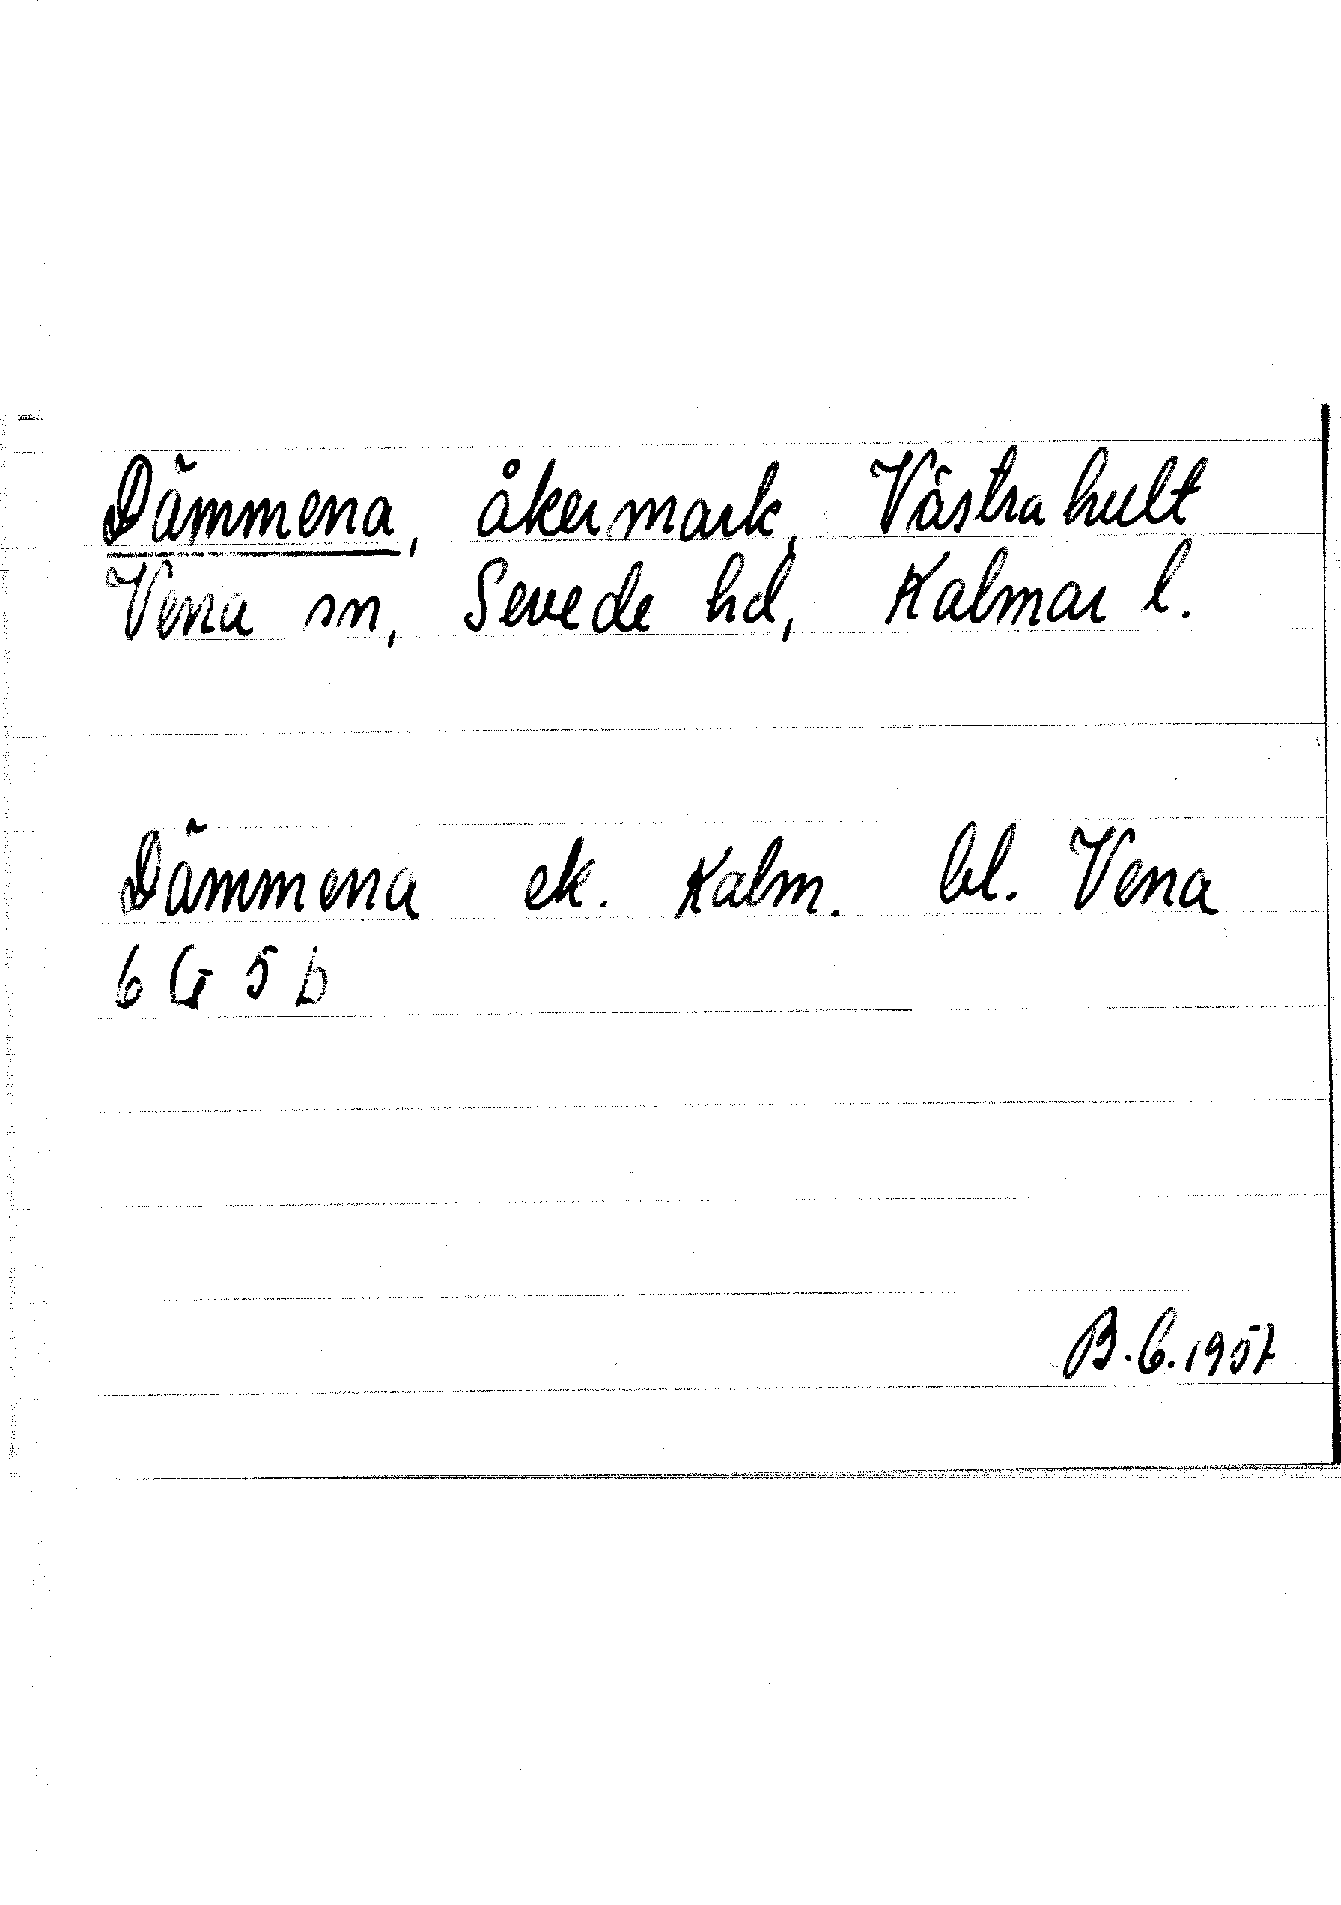 Dämmena, åkermark, Västrahult
Vena sn, Sevede hd, Kalmar l.
Dämmena ek. Kalm. bl. Vena
6 G 5 b
B.C. 1957